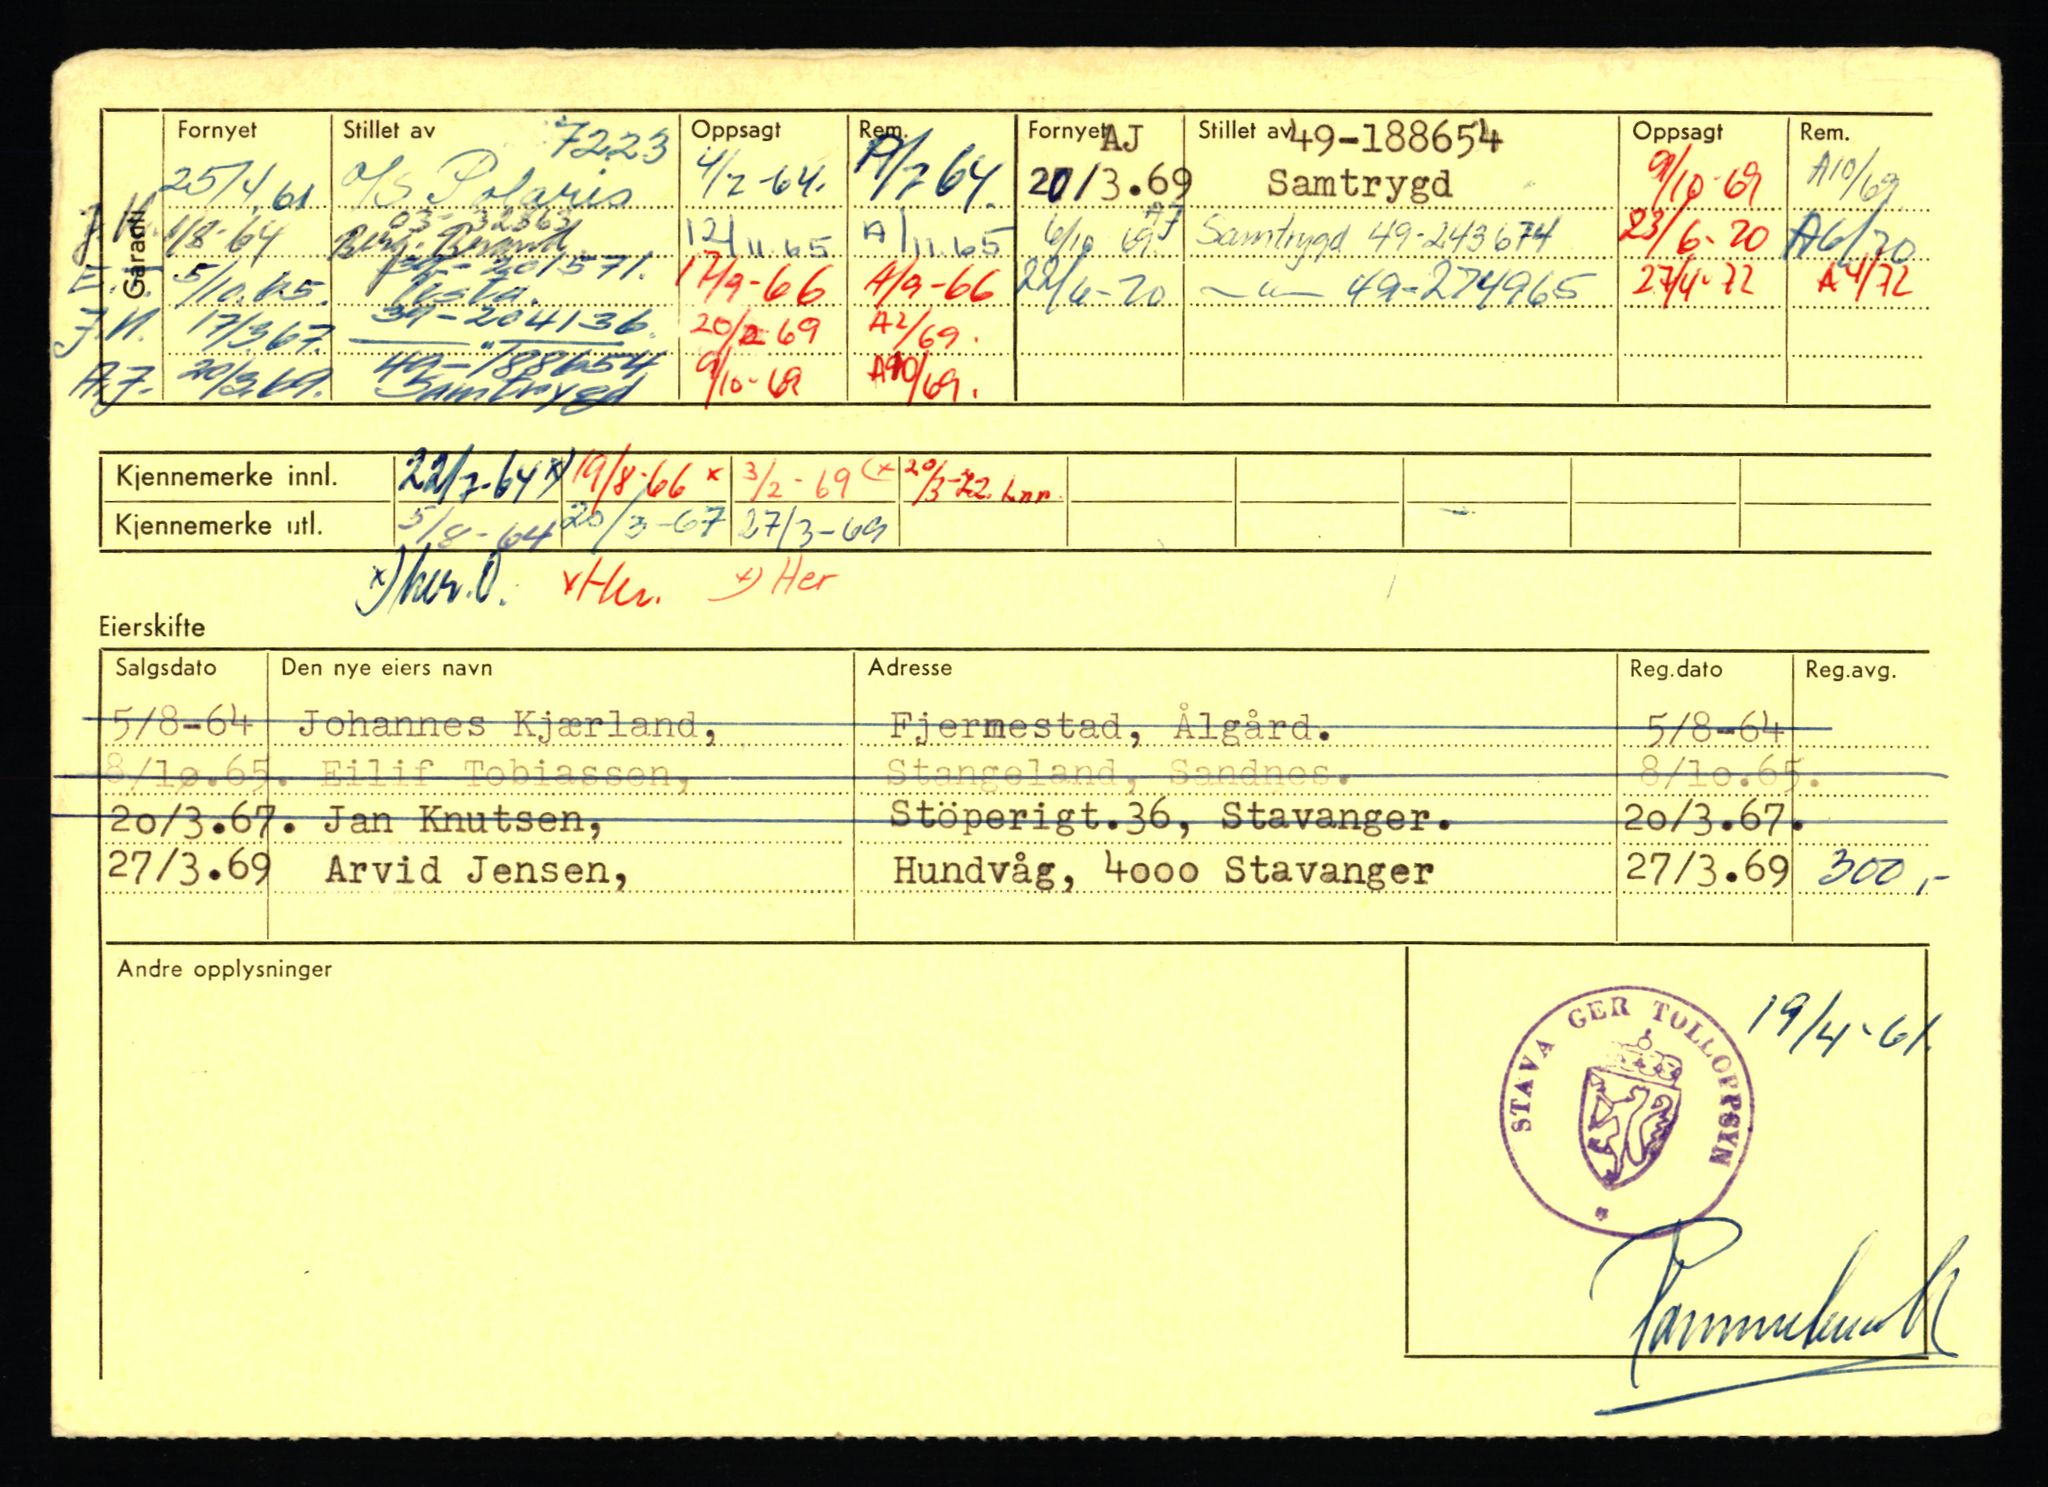 Garanti
Fornyet Stillet av 7223 Oppsagt Rem. Fornyet AJ Stillet av 49-188654 Oppsagt Rem.
25/4.61 A/S Polaris 4/2-64. A/7 64. 20/3.69 Samtrygd 9/10-69 A10/69
J.K. 1/8-64 03-32363 12/11.65 A/11.65 6/10 69 AJ Samtrygd 49-243674 23/6-70 A6/70
E.T. 5/10.65. 39-201571. Vesta. 17/9-66 A/9-66 22/6-70 —"— 49-274965 27/4-72 A4/72
J.K. 17/3.67. 39-204136. —"— 20/2-69 A2/69.
A.J. 20/3.69. 49-188654 Samtrygd 9/10-69 A10/69.
Kjennemerke innl. 22/7-64 x) 19/8-66 x 3/2-69 (x 20/3-72.
Kjennemerke utl. 5/8-64 20/3-67 27/3-69
x) her.O. x Her. x) Her
Eierskifte
Salgsdato Den nye eiers navn Adresse Reg.dato Reg.avg.
5/8-64 Johannes Kjærland, Fjermestad, Ålgård. 5/8-64
8/10.65. Eilif Tobiassen, Stangeland, Sandnes. 8/10.65.
20/3.67. Jan Knutsen, Stöperigt.36, Stavanger. 20/3.67.
27/3.69 Arvid Jensen, Hundvåg, 4000 Stavanger 27/3.69 300,-
Andre opplysninger
19/4-61.
STAVANGER TOLLOPPSYN